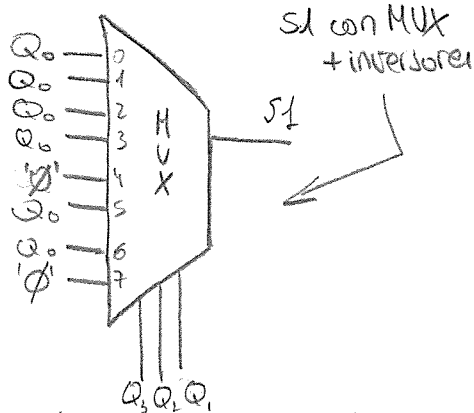 S1 con MUX
+ inversores
Q₀ 0
Q₀ 1
Q₀ 2
Q₀ 3
'Ø' 4
Q₀ 5
Q₀ 6
'Ø' 7
MUX
S1
Q₃ Q₂ Q₁